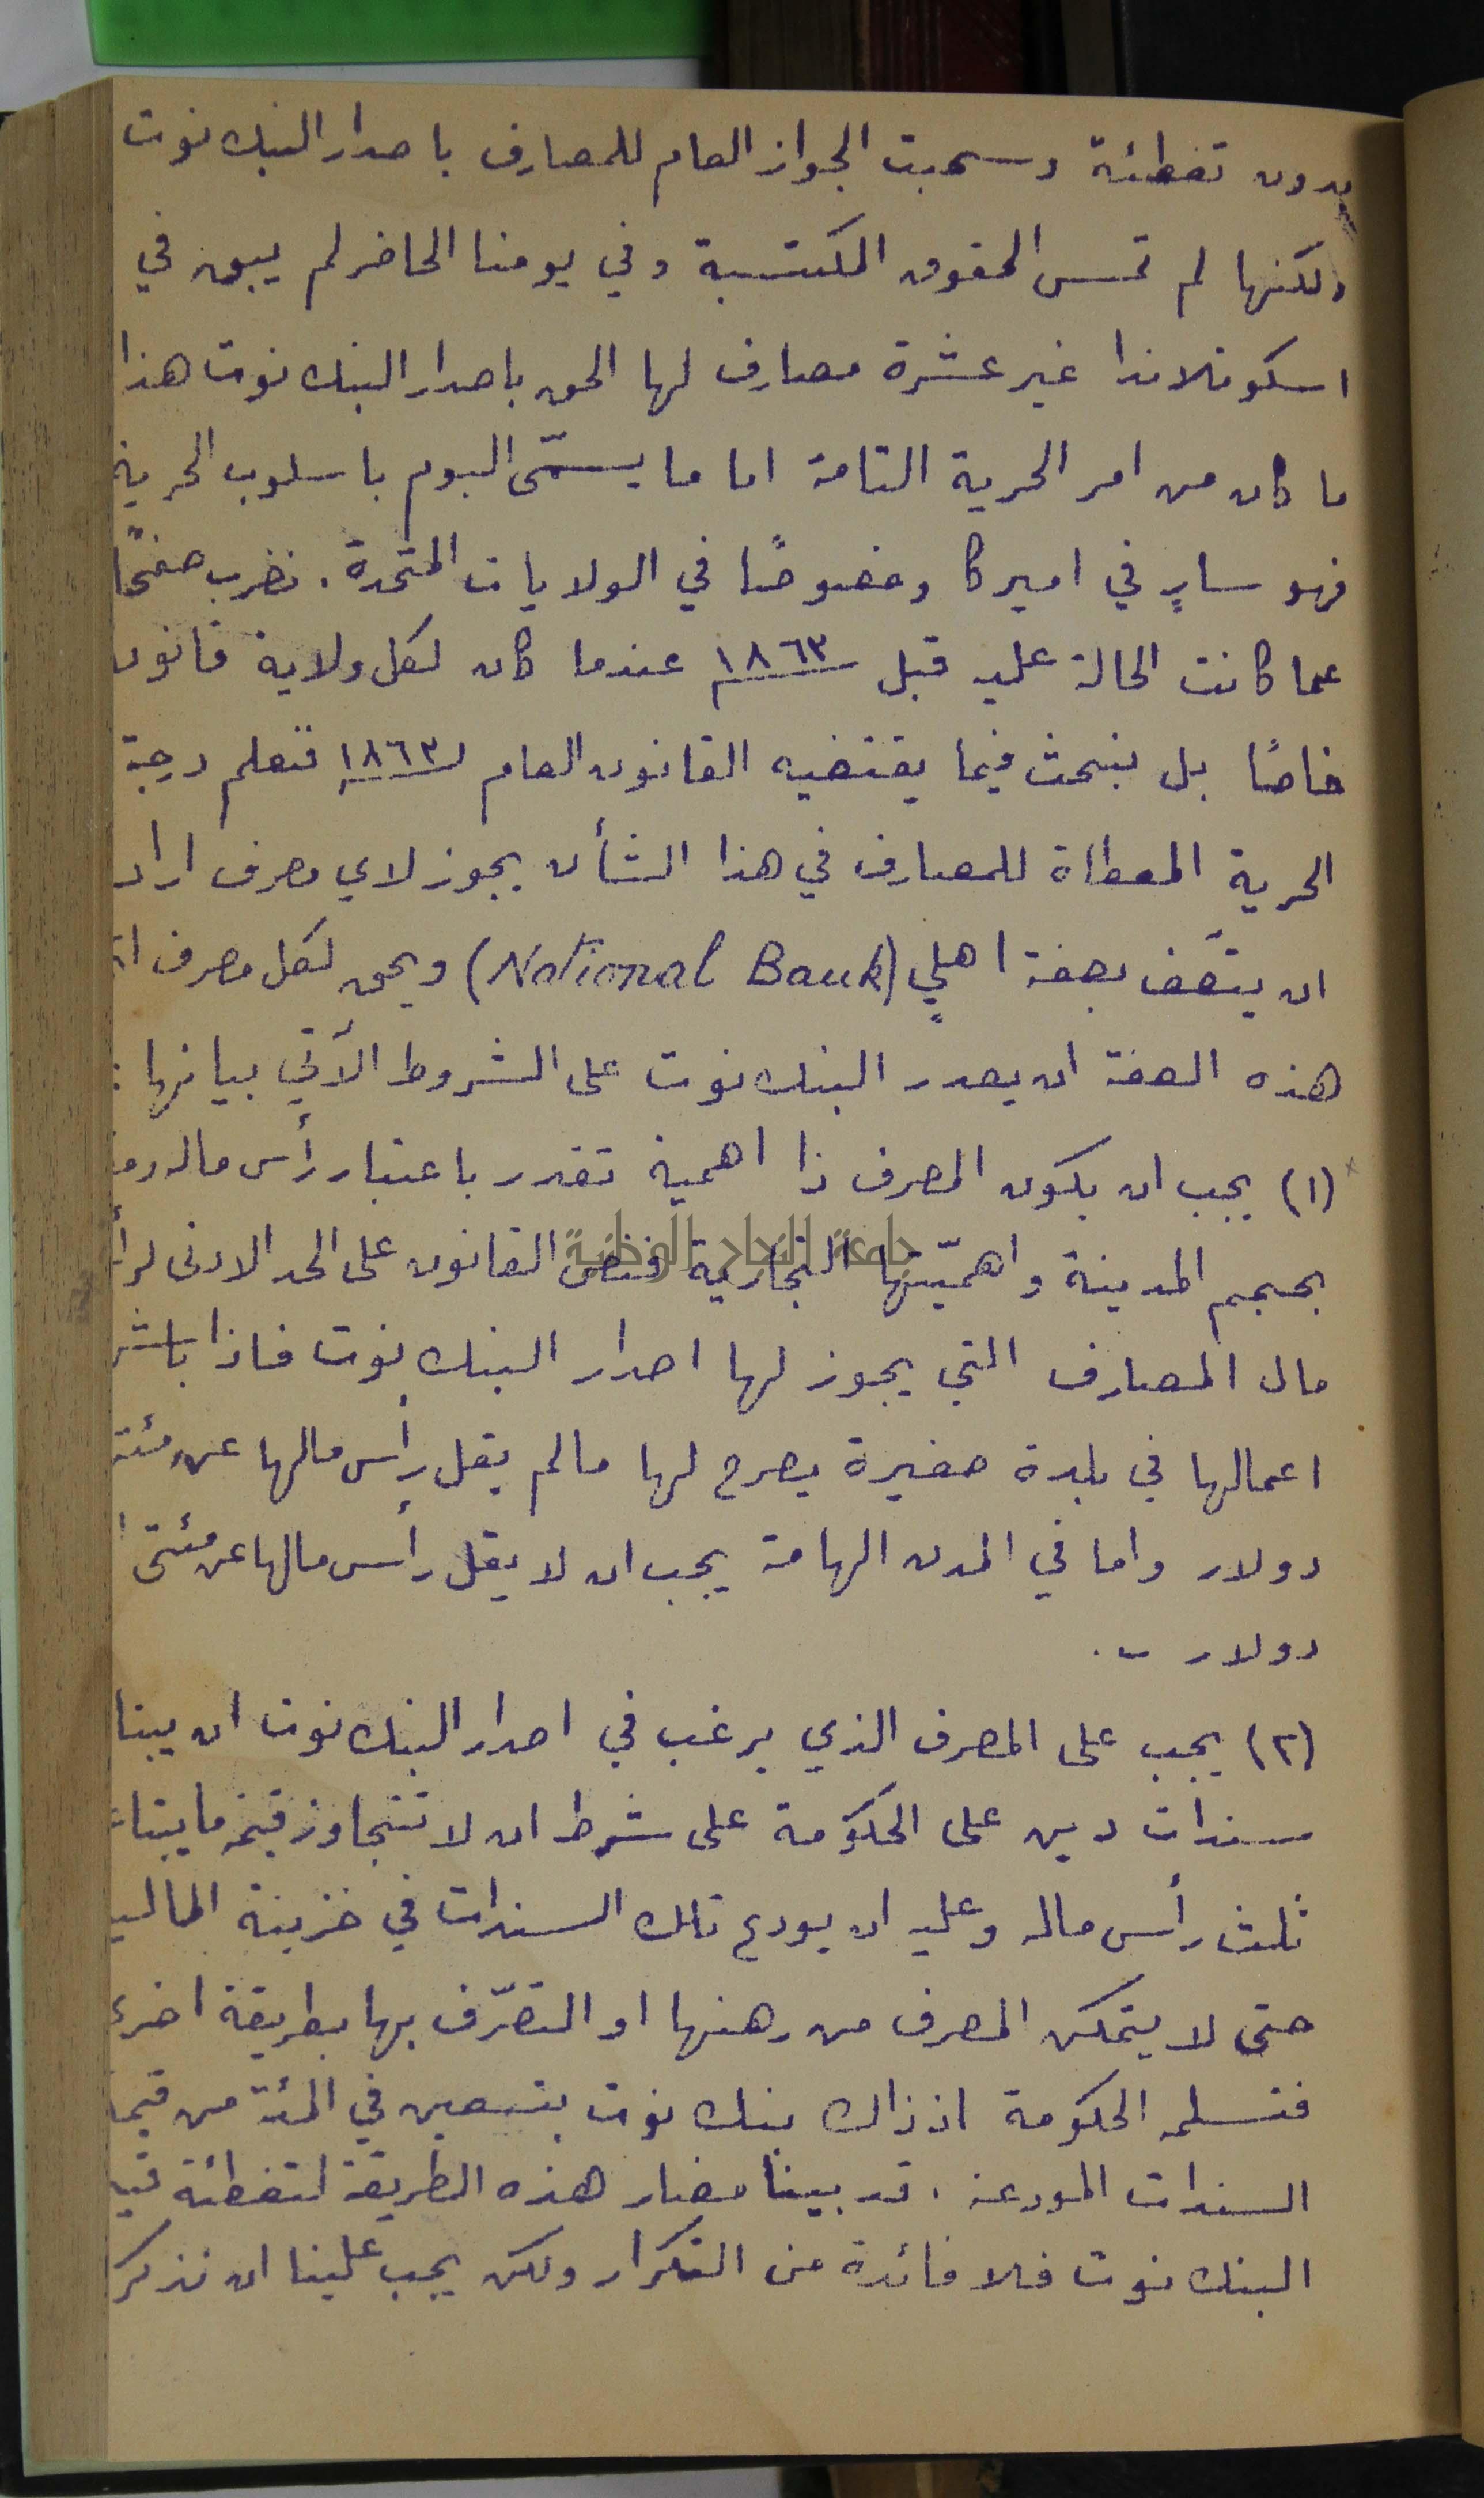 بدون تغطئة وسحبت الجواز العام للمصارف باصدار البنك نوت
ولكنها لم تمس الحقوق المكتسبة وفي يومنا الحاضر لم يبق في
اسكوتلاندا غير عشرة مصارف لها الحق باصدار البنك نوت هذا
ما كان من امر الحرية التامة اما ما يسمّى اليوم باسلوب الحرية
فهو سارٍ في اميركا وخصوصًا في الولايات المتحدة . نضرب صفحًا
عما كانت الحالة عليه قبل ١٨٦٣ عندما كان لكل ولاية قانون
خاصًا بل نبحث فيما يقتضيه القانون العام لـ ١٨٦٣ فنعلم درجة
الحرية المعطاة للمصارف في هذا الشأن يجوز لاي مصرف اراد
ان يتّصف بصفة اهليٍ (National Bank) ويحق لكل مصرف
هذه الصفة ان يصدر البنك نوت على الشروط الآتي بيانها :
(١) يجب ان يكون المصرف ذا اهمية تقدر باعتبار رأس ماله
بحجم المدينة واهميّتها التجارية فنص القانون على الحد الادنى
مال المصارف التي يجوز لها اصدار البنك نوت فاذا باشر
اعمالها في بلدة صغيرة يصرح لها مالم يقل رأس مالها عن مئة
دولار واما في المدن الهامة يجب ان لا يقل رأس مالها عن مئتي
دولار .
(٢) يجب على المصرف الذي يرغب في اصدار البنك نوت ان
سندات دين على الحكومة على شرط ان لا تتجاوز قيمة ما يبتاعه
ثلث رأس ماله وعليه ان يودع تلك السندات في خزينة المالية
حتى لا يتمكن المصرف من رهنها او التصرّف بها بطريقة اخرى
فتسلمه الحكومة اذ ذاك بنك نوت بتسعين في المئة من قيمة
السندات المودعة . قد بينا مضار هذه الطريقة لتغطئة
البنك نوت فلا فائدة من التكرار ولكن يجب علينا ان نذكر
جامعة النجاح الوطنية